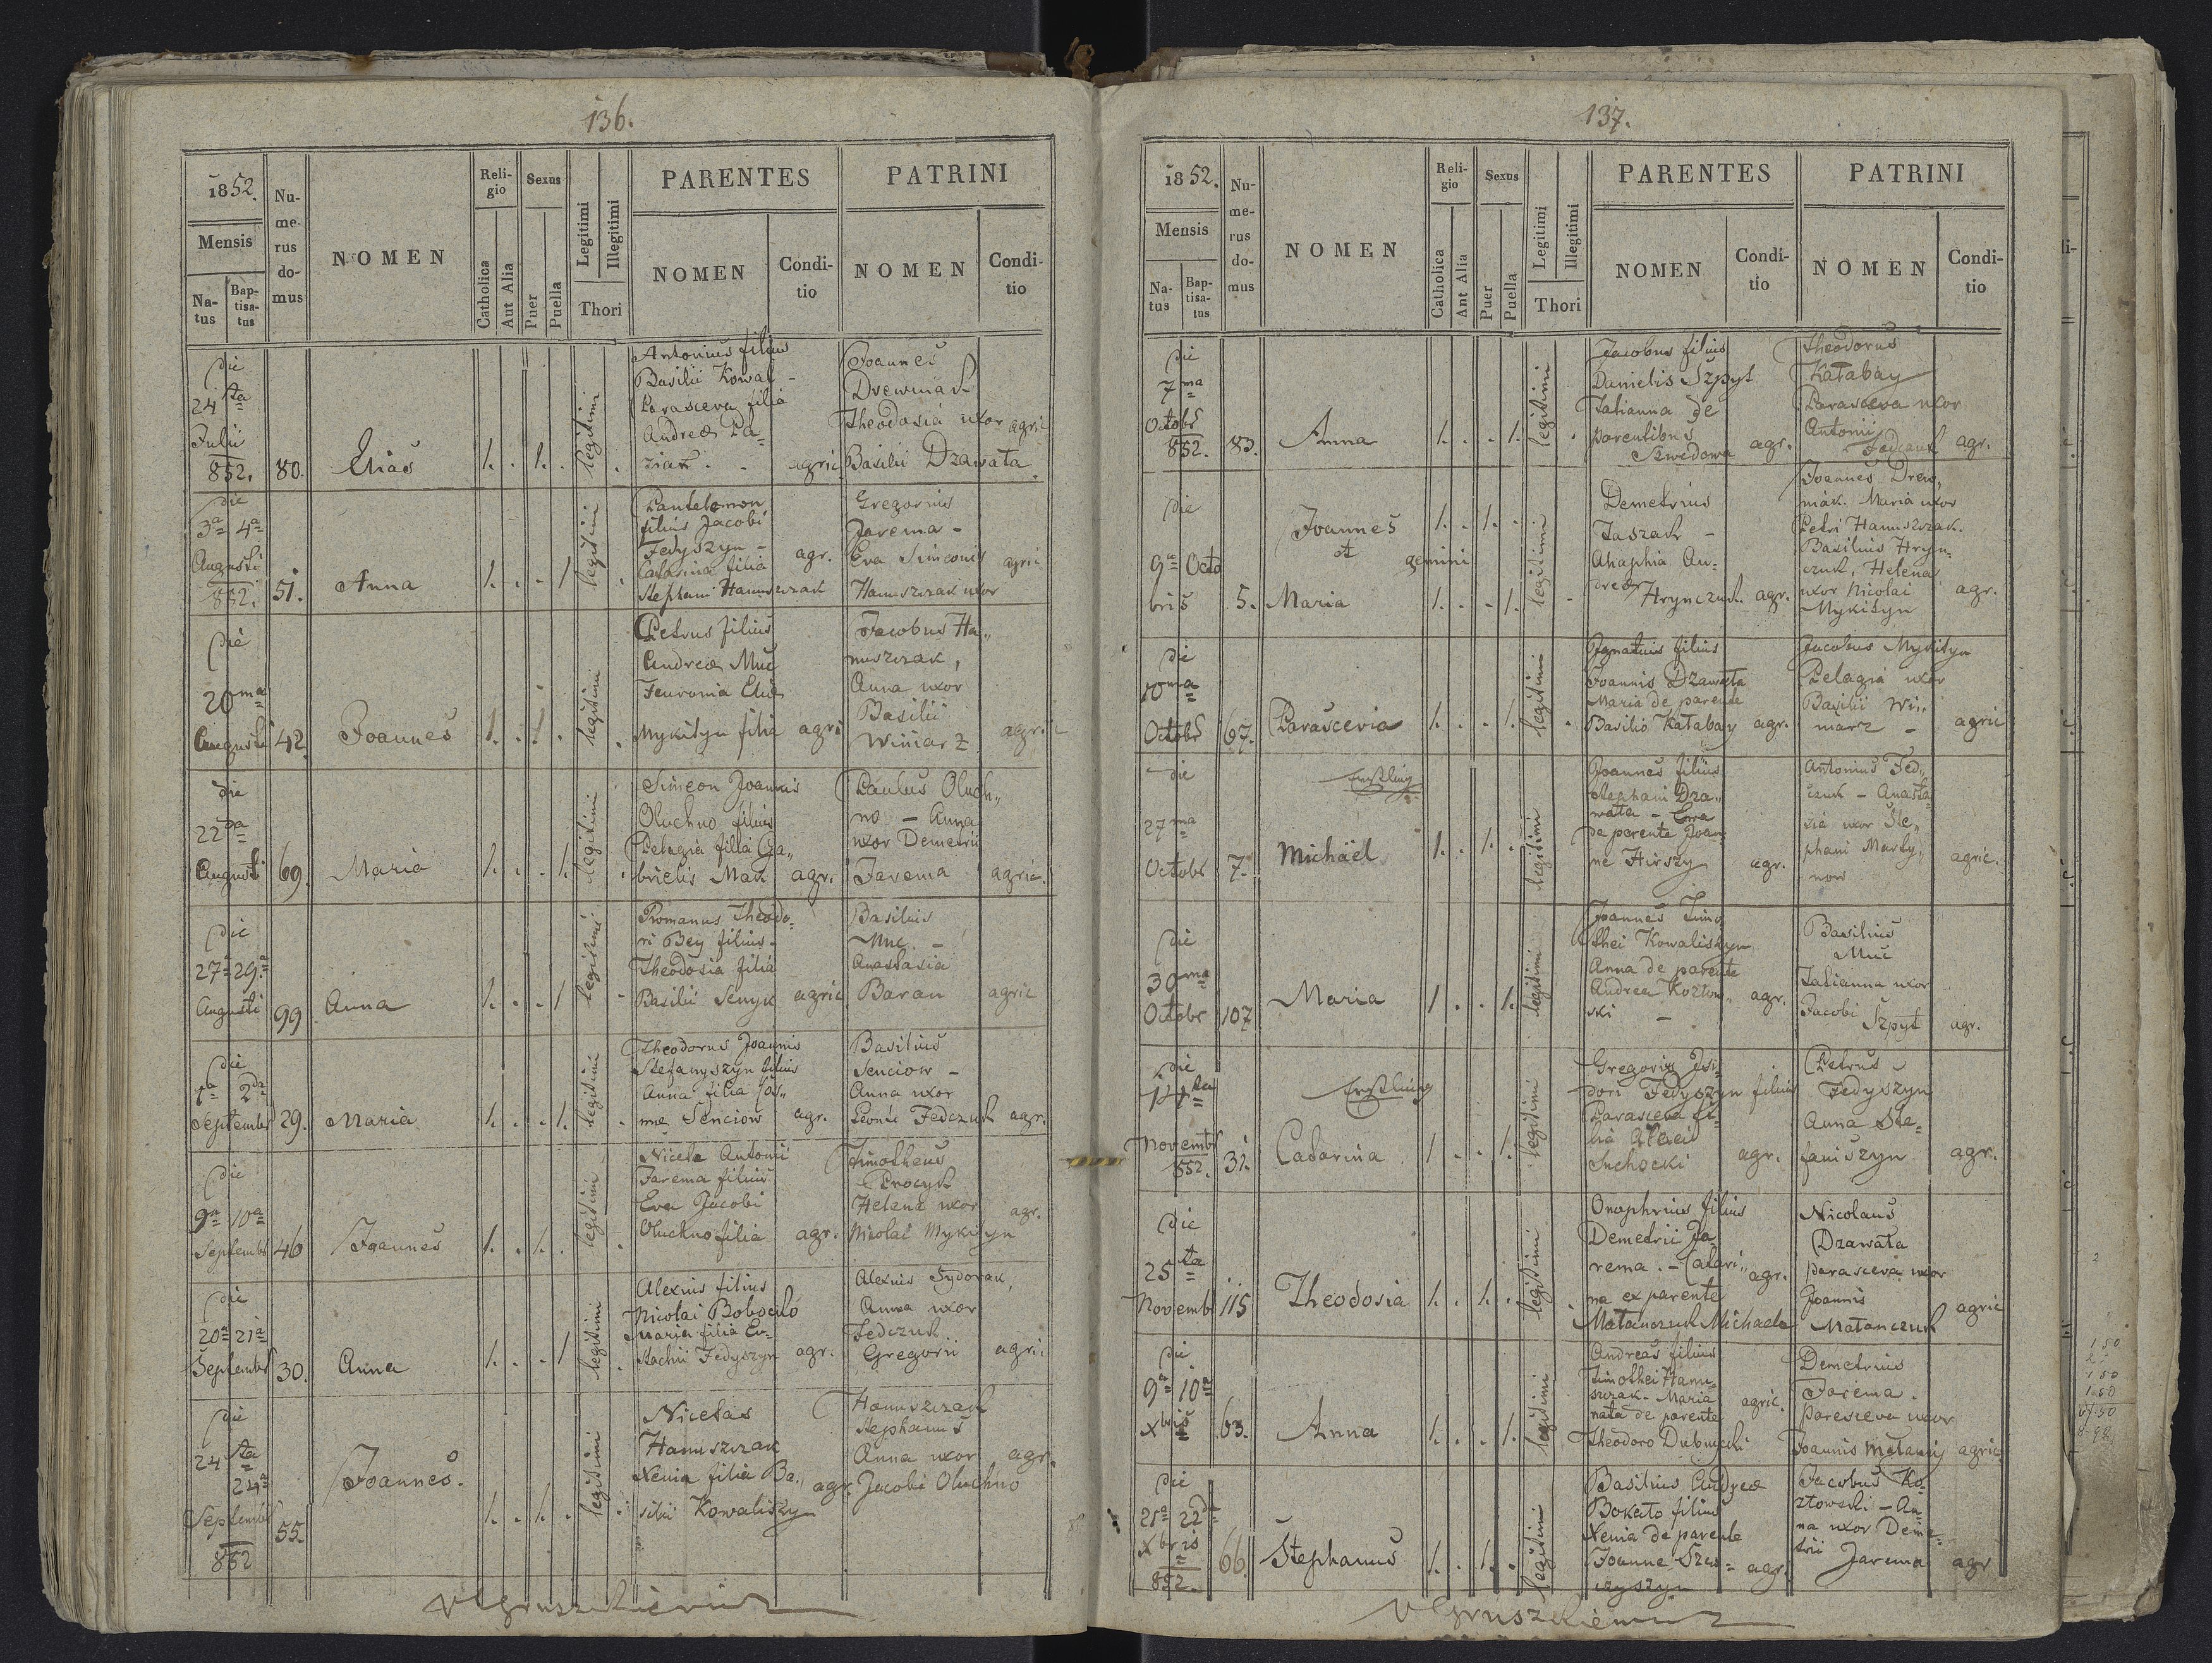 136.
1852.
Mensis
Na-
tus
Bap-
tisa-
tus
Nu-
me-
rus
do-
mus
NOMEN
Reli-
gio
Catholica
Aut Alia
Sexus
Puer
Puella
Legitimi
Illegitimi
Thori
PARENTES
NOMEN
Condi-
tio
PATRINI
NOMEN
Condi-
tio
die
24ta
Julii
852.
80.
Elias
1. . 1. .
legitimi
Antonius filius
Basilii Kowal -
Parasceva filia
Andreae
agric
Joannes
Drewniak
Theodosia uxor
Basilii Dzawała
agric
die
3a 4a
Augusti
852.
51.
Anna
1. . . 1
legitimi
Pantelemon
filius Jacobi
Fedyszyn -
Catarina filia
Stephani Hanuszczak
agr.
Gregorius
Jarema -
Eva Simeonis
Hanuszczak uxor
agric
die
20ma
Augusti
42
Joannes
1. . 1. .
legitimi
Petrus filius
Andreae Muc
Feuronia Eliae
Mykityn filia
agri
Jacobus Ha„
nuszczak,
Anna uxor
Basilii
Winiarz
agri
die
22da
Augusti
69.
Maria
1. . . 1.
legitimi
Simeon Joannis
Oluchno filius
Pelagia filia Ga„
brielis Mak
agr.
Paulus Oluch„
no - Anna
uxor Demetrii
Jarema
agric.
die
27a 29a
Augusti
99
Anna
1. . . 1
legitimi
Romanus Theodo-
ri Bey filius -
Theodosia filia
Basilii Senyk
agric
Basilius
Muc. -
Anastasia
Baran
agric
die
1a 2da
Septembr
29.
Maria
1. . . 1.
legitimi
Theodorus Joannis
Stefanyszyn filius
Anna filia Cos„
mae Senciow
agr.
Basilius
Senciow -
Anna uxor
Leontii Fedczuk
agr.
die
9a 10a
Septembr
46
Joannes
1. . 1. .
legitimi
Niceta Antonii
Jarema filius
Eva Jacobi
Oluchno filia
agr.
Timotheus
Procyk
Helena uxor
Nicolai Mykityn
agr.
die
20a 21a
Septembr
30.
Anna
1. . . 1
legitimi
Alexius filius
Nicolai Boboczko
Maria filia Eu-
stachii Fedyszyn
agr.
Alexius Sydorak,
Anna uxor
Fedczuk
Gregorii
agri
die
24ta
24a
Septembr
852
55.
Joannes.
1. . 1. .
legitimi
Nicetas
Hanuszczak
Xenia filia Ba„
silii Kowaliszyn
agr.
Hanuszczak
Stephanus
Anna uxor
Jacobi Oluchno
agr.
137.
1852.
Mensis
Na-
tus
Bap-
tisa-
tus
Nu-
me-
rus
do-
mus
NOMEN
Reli-
gio
Catholica
Aut Alia
Sexus
Puer
Puella
Legitimi
Illegitimi
Thori
PARENTES
NOMEN
Condi-
tio
PATRINI
NOMEN
Condi-
tio
die
7ma
Octobr
852.
83.
Anna
1. . . 1.
legitimi
Jacobus filius
Danielis Szpyt
Tatianna de
parentibus
Szwedowa
agr.
Theodorus
Katabay
Parasceva uxor
Antonii
Fedczuk
agr.
die
9a Octo
bris
5.
Joannes
et gemini
Maria
1. . 1. .
1. . . 1.
legitimi
Demetrius
Jaszak -
Ahaphia An-
dreae Hrynczuk
agr.
Joannes Drew„
niak. Maria uxor
Petri Hanuszczak.
Basilius Hryn-
czuk, Helena
uxor Nicolai
Mykityn
agr.
die
10ma
Octobr
67.
Parascevia
1. . . 1.
legitimi
Ignatius filius
Joannis Dzawała
Maria de parente
Basilio Katabay
agr.
Jacobus Mykityn
Pelagia uxor
Basilii Wi„
niarz -
agric
die
27ma
Octobr
7.
Erstling
Michäel
1. . 1. .
legitimi
Joannes filius
Stephani Dza„
wała - Eva
de parente Joan-
ne Hirszy
agr.
Antonius Fed„
czuk - Anasta-
sia uxor Ste„
phani Marty„
now
agric.
die
30ma
Octobr
107
Maria
1 . . 1.
legitimi
Joannes Timo
thei Kowaliszyn
Anna de parente
Andrea Kozłow„
ski -
agr.
Basilius
Muc
Tatianna uxor
Jacobi
Szpyt
agr.
die
14ta
Novembr
852.
31.
Erstling
Catarina
1 . . 1.
legitimi
Gregorius Isi-
dori Fedyszyn filius
Parasceva fi-
lia Alexii
Suchocki
agr.
Petrus
Fedyszyn
Anna Ste-
faniszyn
agr.
die
25ta
Novembr
115
Theodosia
1. . 1. .
legitimi
Onophrius filius
Demetrii Ja
rema. - Catari„
na ex parente
Matanczuk Michaele
agr.
Nicolaus
Dzawała
parasceva uxor
Joannis
Matanczuk
agric
die
9a 10a
Xbris
63.
Anna
1. . . 1.
legitimi
Andreas filius
Timothei Hanu-
szczak - Maria
nata de parente
Theodoro Dubnycki
agric.
Demetrius
Jarema.
Paresceva uxor
Joannis
agric
die
21a 22da
Xbris
852.
66.
Stephanus
1. . 1. .
legitimi
Basilius Andreae
Bokało filius
Xenia de parente
Joanne
agr.
Jacobus Ko-
złowski - An-
na uxor Deme-
trii Jarema
agr